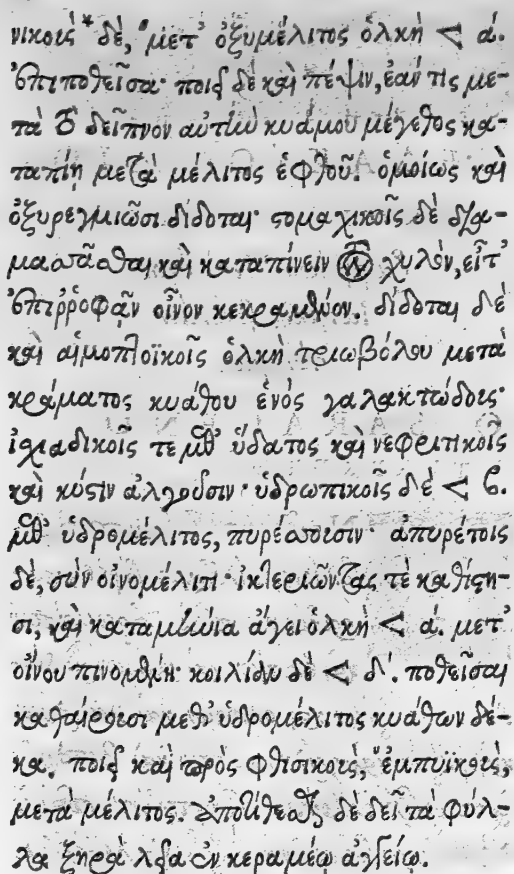 νικοῖς* δὲ, "μετ' ὀξυμέλιτος ὁλκὴ < ά.
ἐπιποθεῖσα· ποιεῖ δὲ καὶ πέψιν, ἐάν τις με-
τὰ τὸ δεῖπνον αὐτὴν κυάμου μέγεθος κα-
ταπίῃ μετὰ μέλιτος ἑφθοῦ. ὁμοίως καὶ
ὀξυρεγμιῶσι δίδοται· στομαχικοῖς δὲ δια-
μασᾶσθαι καὶ καταπίνειν τὸν χυλὸν, εἶτ'
ἐπιῤῥοφᾷν οἶνον κεκραμένον. δίδοται δὲ
καὶ αἱμοπτοϊκοῖς ὁλκὴ τριωβόλου μετὰ
κράματος κυάθου ἑνὸς γαλακτώδους·
ἰσχιαδικοῖς τε μεθ' ὕδατος καὶ νεφριτικοῖς
καὶ κύστιν ἀλγοῦσιν· ὑδρωπικοῖς δὲ < ϐ.
μεθ' ὑδρομέλιτος, πυρέσσουσιν· ἀπυρέτοις
δὲ, σὺν οἰνομέλιτι· ἰκτεριῶντας τὲ καθίστη-
σι, καὶ καταμήνια ἄγει ὁλκὴ < ά. μετ'
οἴνου πινομένη· κοιλίαν δὲ < δ'. ποθεῖσαι
καθαίρουσι μεθ' ὑδρομέλιτος κυάθων δέ-
κα. ποιεῖ καὶ πρὸς φθισικοὺς, "ἐμπυϊκοὺς,
μετὰ μέλιτος. ἀποτίθεσθαι δὲ δεῖ τὰ φύλ-
λα ξηρὰ λεῖα ἐν κεραμέῳ ἀγγείῳ.